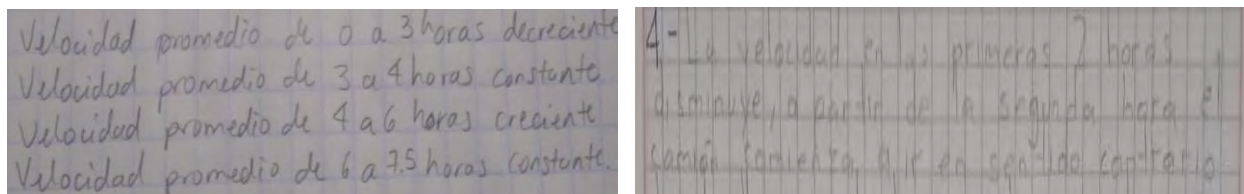 Velocidad promedio de 0 a 3 horas decreciente
Velocidad promedio de 3 a 4 horas constante
Velocidad promedio de 4 a 6 horas creciente
Velocidad promedio de 6 a 7.5 horas constante.
4- La velocidad en las primeras 2 horas
disminuye, a partir de la segunda hora el
camión comienza a ir en sentido contrario.